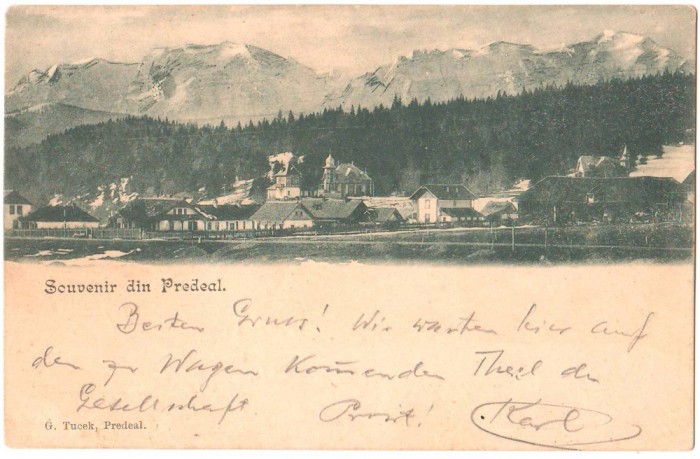 Souvenir din Predeal.
Besten Gruss! Wir warten hier auf
den zu Wagen kommenden Theil der
Gesellschaft Prosit! Karl
G. Tucek, Predeal.